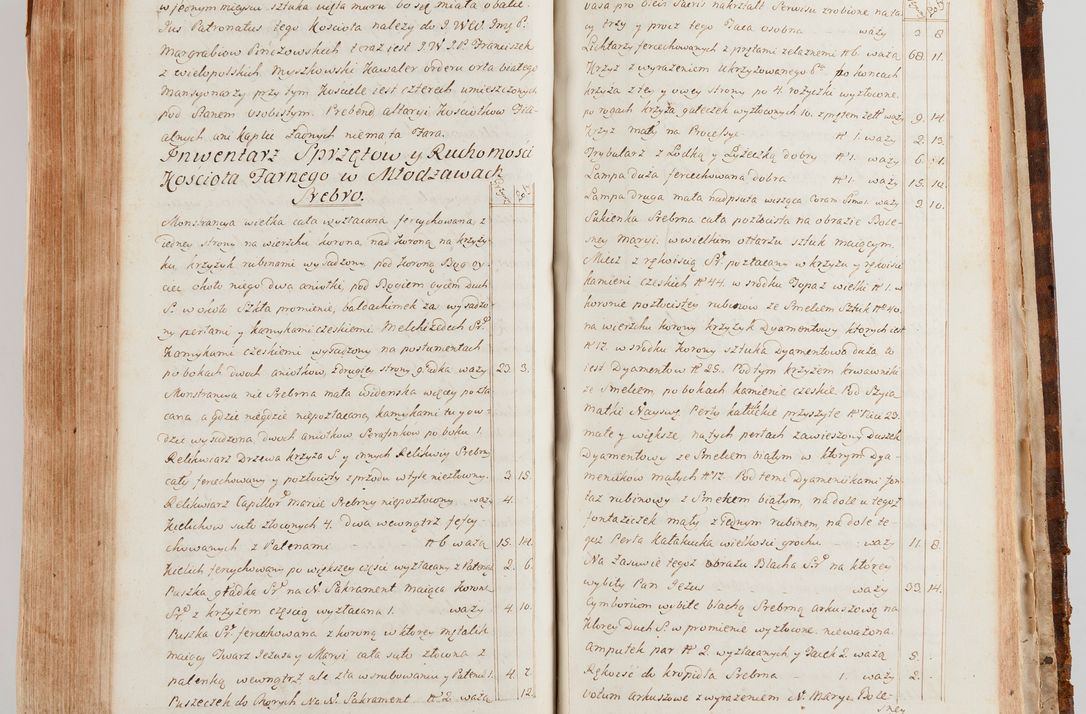 w jednym miejscu sztuka ujęta muru bo się miała obalić.
Jus Patronatus tego Kościoła należy do J. WW Imę P.
Margrabiow Pinczowskich teraz iest J.W J.P. Franciszek
z wielopolskich Myszkowski Kawaler orderu orła białego
Mansyonarzy przy tym Kosciele iest czterech umieszczonych
pod Stanem osobistym. Prebend, altaryi Kościołkow Fili-
alnych ani kaplic żadnych niema ta Fara.
Inwentarz Sprzętow y Ruchomości
Kościoła Farnego w Młodzawach
Srebro.
Monstrancya wielka cała wyzłacana ferychowana z
iedney strony na wierzchu korona, nad koroną na krzyży-
ku krzyżyk rubinami wysadzony pod koroną Bog oy-
ciec około niego dwa aniołki pod Bogiem oycem Duch
S. w około Szkła promienie, baldachimek za wysadzo-
ny perłami y kamykami czeskiemi Melchizedech Sr.
Kamykami czeskiemi wysadzony na postumentach
po bokach dwoch aniołkow, z drugiey strony gładka waży 23. 3.
Monstrancya nie Srebrna mała widenska więcey pozła
cana a gdzie niegdzie niepozłacana, kamykami tu y ow-
dzie wysadzona dwoch aniołkow Serafinkow po boku 1.
Relikwiarz Drzewa krzyża S. y innych Relikwiy Srebrny
cały ferechowany y pozłocisty z przodu w tyle niezłocony. 3 15.
Relikwiarz Capillor Mariæ Srebrny niepozłocony waży 4.
Kielichow suto złoconych 4. dwa wewnątrz fery-
chowanych z Patenami # 6 ważą 15. 14.
Kielich ferychowany po większey części wyzłacany z Pateną 2. 6.
Puszka gładka Sr na N. Sakrament maiąca koronę
Sr z krzyżem częscią wyzłacana 1. waży 4. 10.
Puszka Sr. ferechowana z koroną w ktorey metalik
maiący Twarz Jezusa y Maryi cała suto złocona z
palenką wewnątrz ale zła w srubowaniu y Pateną 1. 4. 7.
Puszeczek do Chorych Na N. Sakrament # 2. ważą 12.
vasa pro Oleis Sacris nakształt Serwisu zrobione na ta-
cy trzy y procz tego Taca osobna waży 2 8
Lichtarzy ferechowanych z prętami żelaznemi # 6 ważą 68. 11.
Krzyż z wyrażeniem Ukrzyżowanego po koncach
krzyża z tey y owey strony po 4. rożyczki wyzłocone,
po rogach krzyża gałeczek wyzłoconych 10. z prętem żel. waży 9. 14
Krzyż mały na Procesye # 1. waży 2. 13.
Trybularz z Łodką y Łyżeczką dobry # 1. waży 6 1.
Lampa duża ferechowana dobra # 1. waży 15. 12.
Lampa druga mała nadpsuta wisząca Coram Smo 1. waży 2 10.
Sukienka Srebrna cała pozłocista na obrazie Bole-
sney Maryi. w wielkim ołtarzu sztuk maiącym.
Miecz z rękoieścią Sr. pozłacany w krzyżu y rękoieści
kamieni czeskich # 44. w srodku Topaz wielki # 1. w
koronie pozłocistey rubinow ze Smelcem Sztuk # 40.
na wierzchu korony krzyżyk Dyamentowy ktorych iest
# 17. w srodku korony sztuka Dyamentowa duża, to
iest Dyamentow # 25. Pod tym krzyżem krwawniki
ze Smelcem po bokach kamienie czeskie Pod Szyią
Matki Nayswię. Perły kałackie przyszyte # Sztuk 23.
małe y większe na tych perłach zawieszony Duszek
Dyamentowy ze Smelcem białym w ktorym Dya-
mencikow małych # 17. Pod temi Dyamencikami fon
taź rubinowy z Smelcem białym, na dole u tegoż
fontazieczek mały z iednym rubinem, na dole te-
goż Perła kałakucka wielkosci grochu waży 11. 8.
Na zasuwie tegoż obrazu Blacha Sr. na ktorey
wybity Pan Jezus waży 33. 14.
Cymborium wybite blachą Srebrną arkuszową na
ktorey Duch S. w promienie wyzłocone. nieważona.
Ampułek par # 2 wyzłacanych y Tacek 2 ważą 5.
Rękoieść do kropidła Srebrna 1. waży 2.
votum arkuszowe z wyrażeniem N. Maryi Bole-
sney